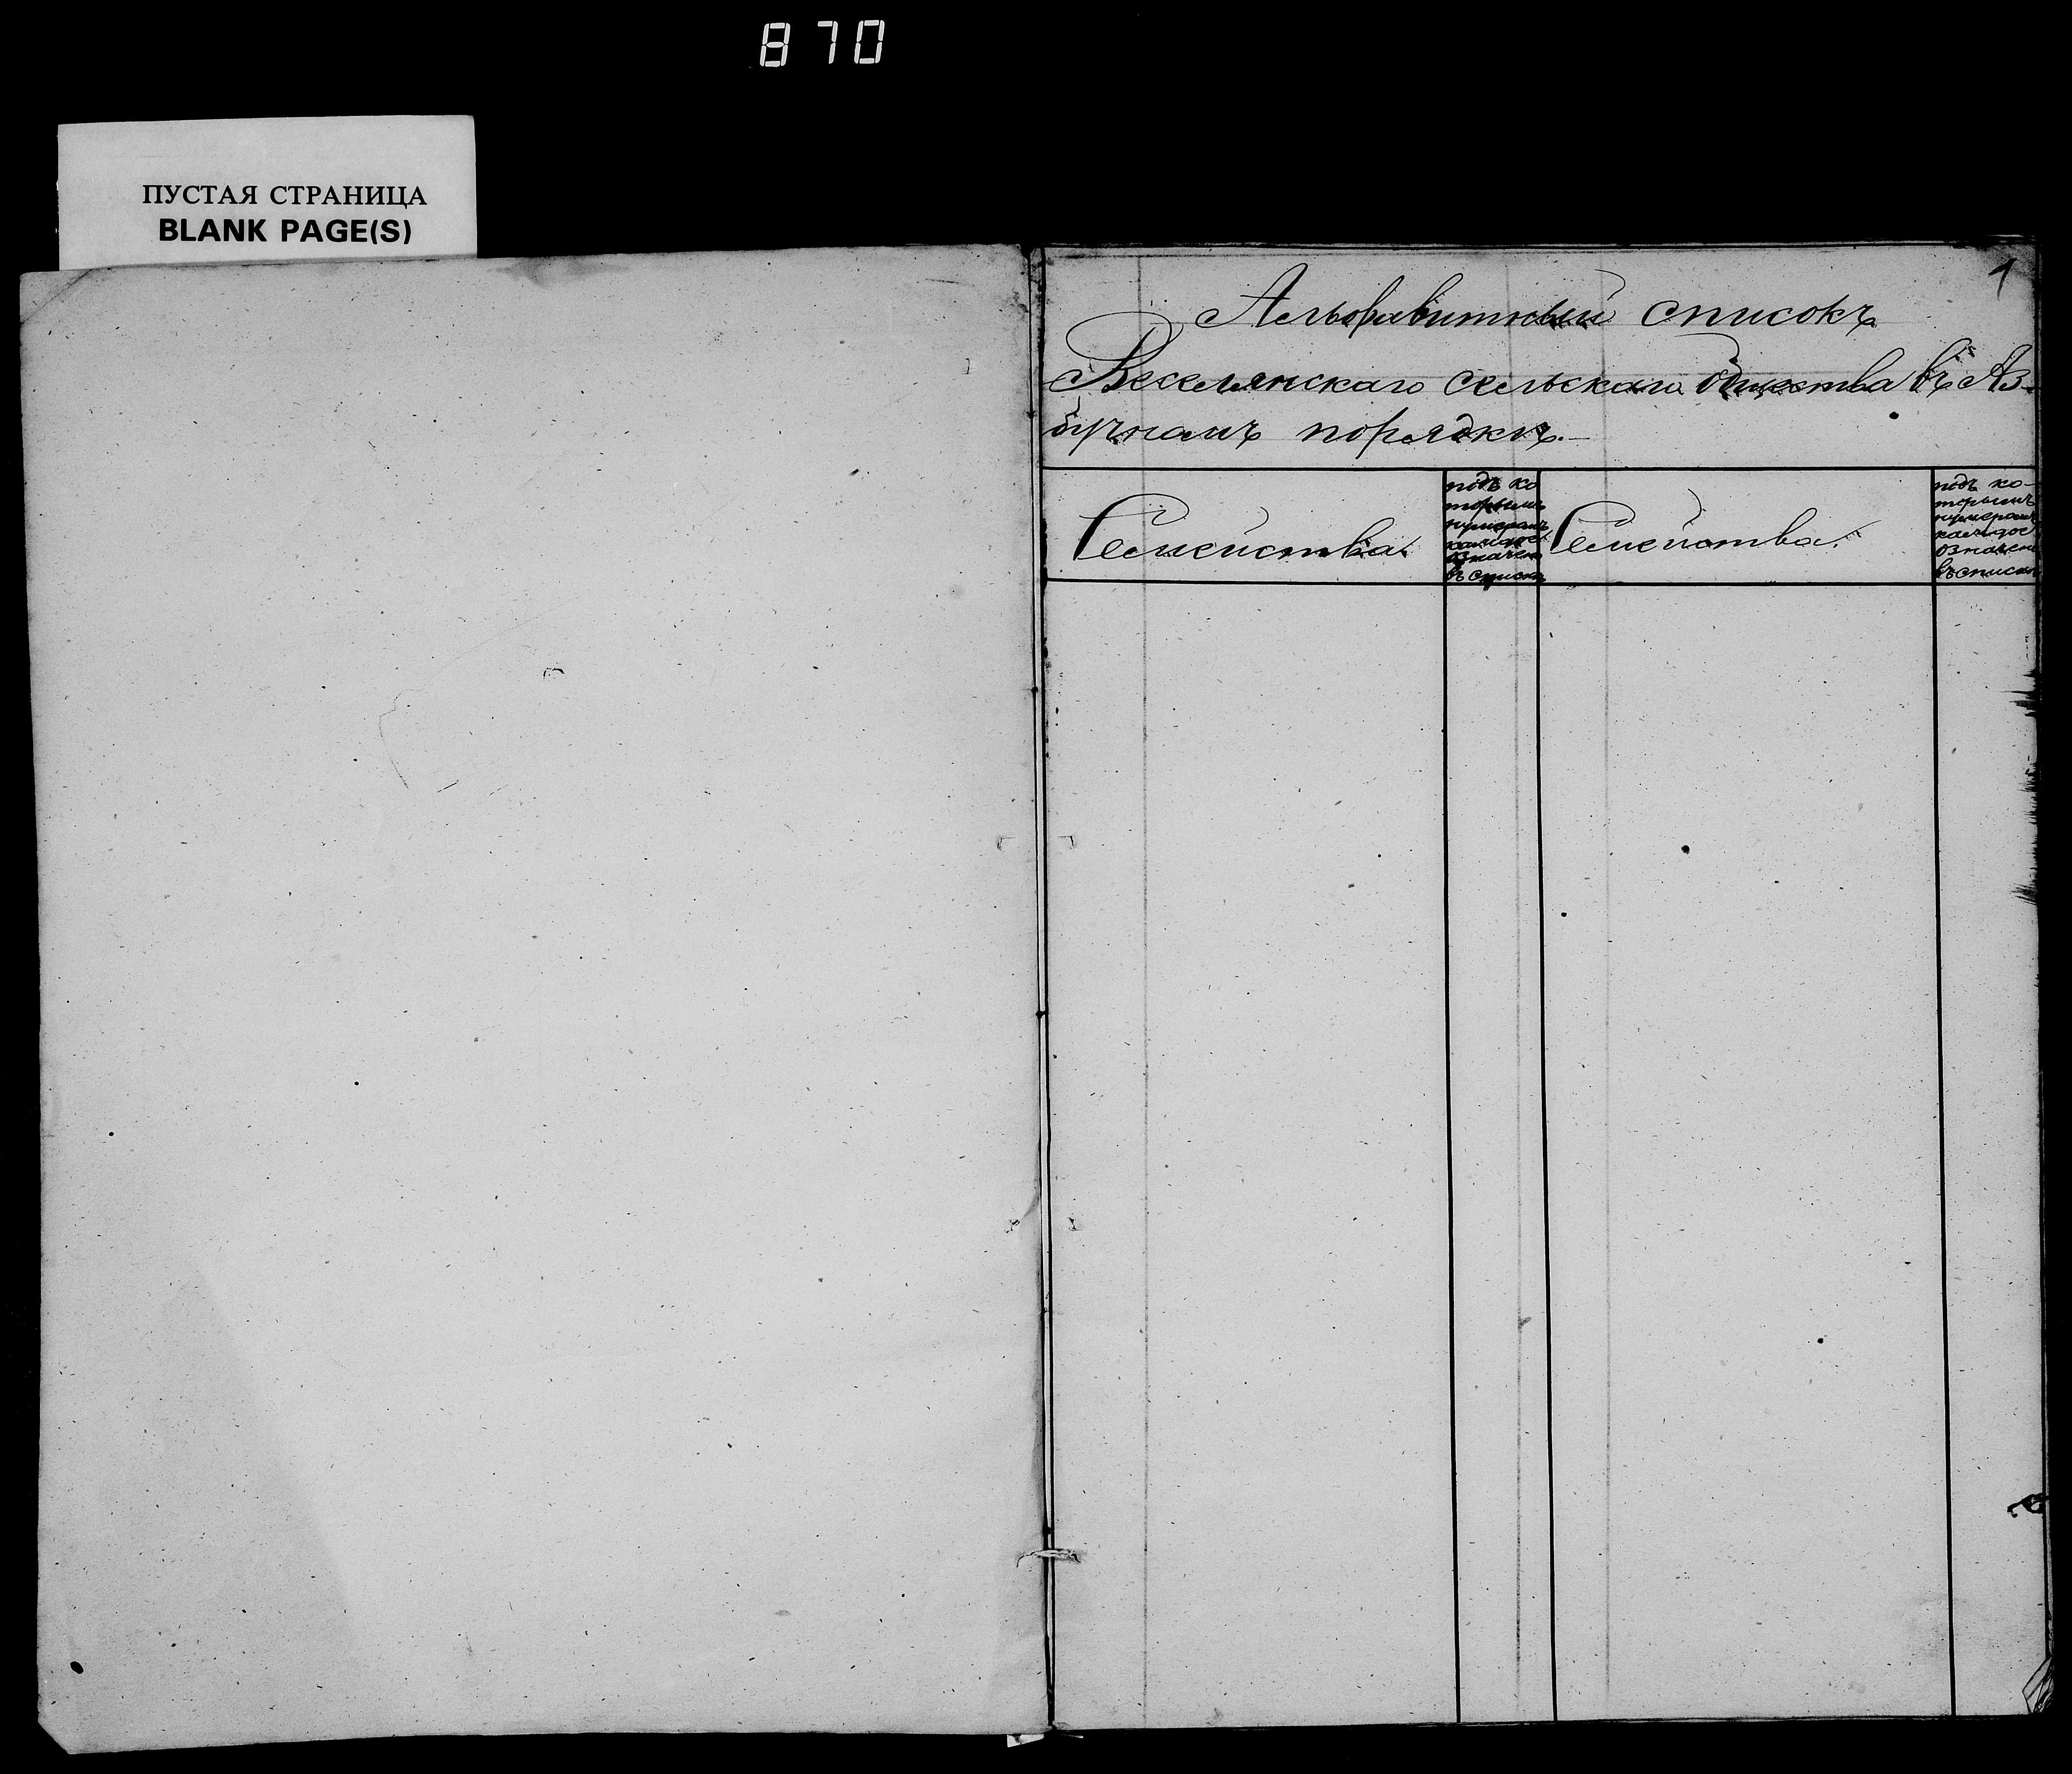 870
ПУСТАЯ СТРАНИЦА
BLANK PAGE(S)
1
Альфавитный списокъ
Веселянскаго сельскаго общества въ Аз-
бучномъ порядкѣ.—
Семейства.
подъ ко
торымъ
нумеромъ
каждое
означен
въ списке
Семейства.
подъ ко-
торымъ
нумеромъ
каждое
означен
въ списке